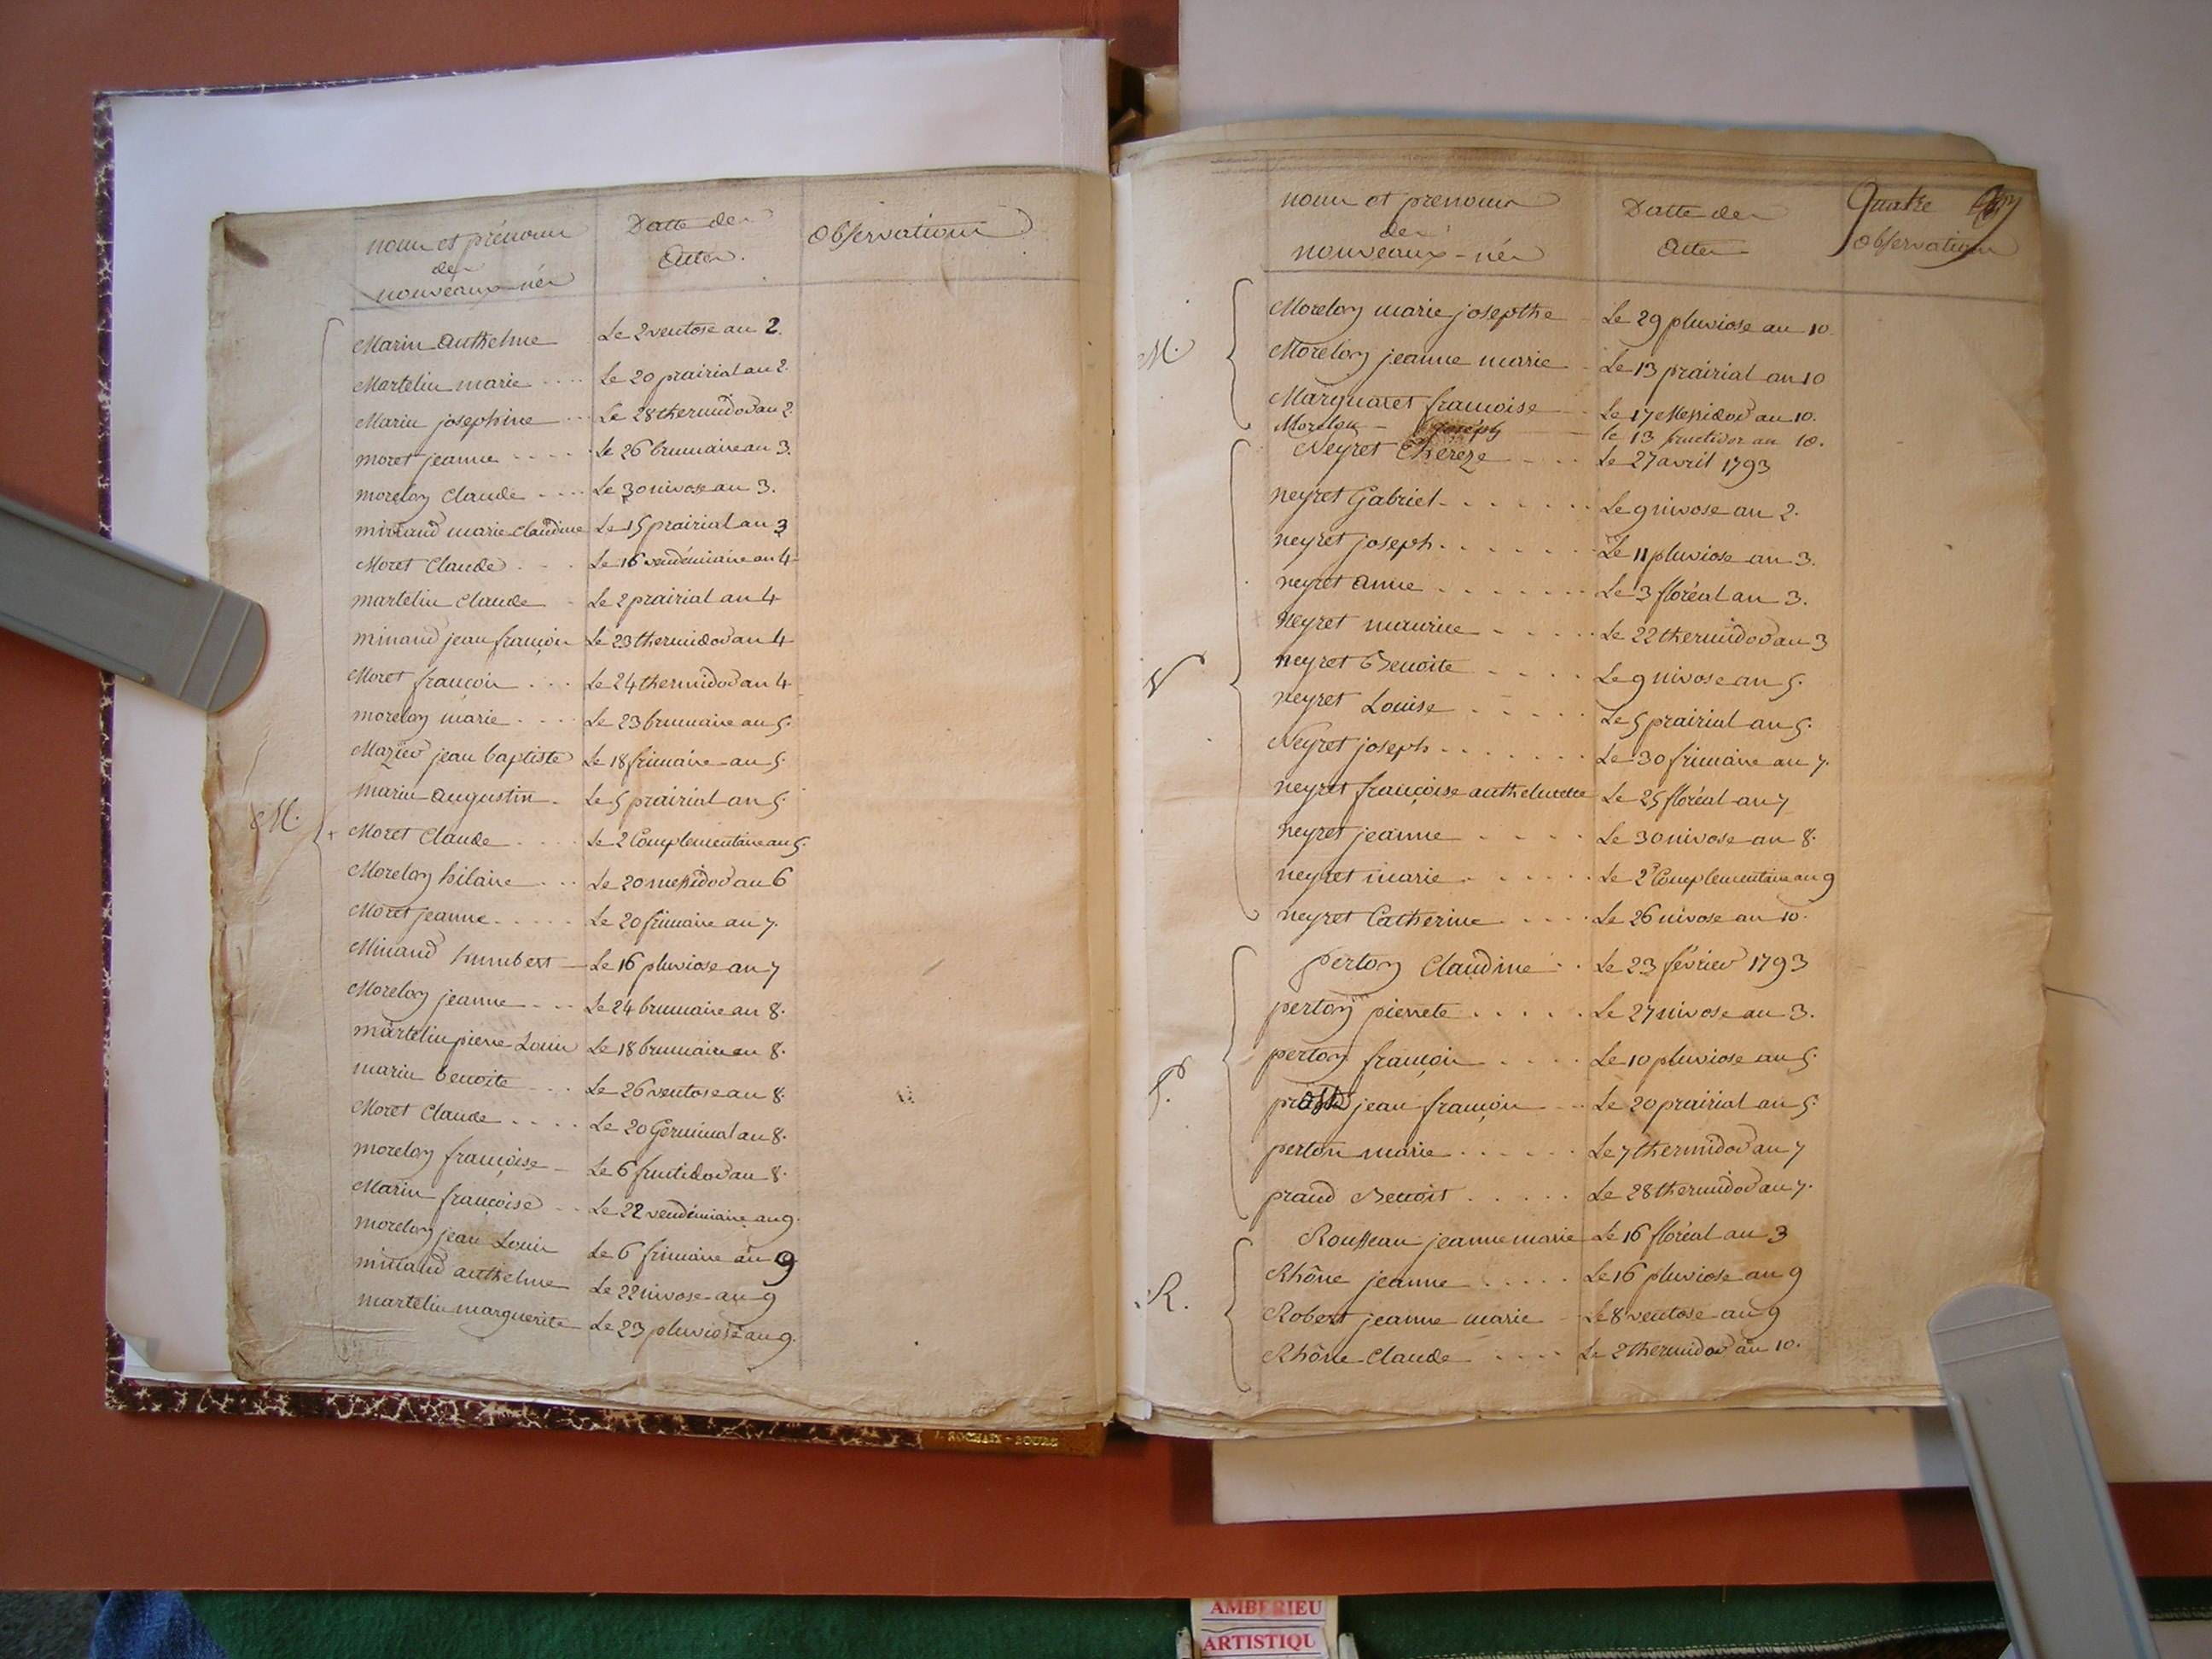 noms et prénoms
des
nouveaux-nés
Datte des
Actes.
Observations
M.
Marin Anthelme Le 2 ventose an 2.
Martelin marie .... Le 20 prairial an 2.
Marin josephine ... Le 28 thermidor an 2.
moret jeanne .... Le 26 brumaire an 3.
morelon Claude .... Le 30 nivose an 3.
minand marie Claudine Le 15 prairial an 3
Moret Claude . . . Le 16 vendémiaire an 4
martelin Claude - Le 2 prairial an 4
minand jean françois Le 23 thermidor an 4
Moret françois ... Le 24 thermidor an 4
morelon marie .... Le 23 brumaire an 5.
Mazier jean baptiste Le 18 frimaire an 5.
marin augustin . Le 5 prairial an 5.
+ Moret Claude .... Le 2 Complementaire an 5.
Morelon hilaire ... Le 20 messidor an 6
Moret jeanne ..... Le 20 frimaire an 7.
Minand humbert — Le 16 pluviose an 7
Morelon jeanne ... Le 24 brumaire an 8.
martelin pierre Louis Le 18 brumaire an 8.
marin benoite ... Le 26 ventose an 8.
Moret Claude .... Le 20 Germinal an 8.
morelon françoise — Le 6 fructidor an 8.
Marin françoise .. Le 22 vendémiaire an 9.
morelon jean Louis Le 6 frimaire an 9
minand anthelme Le 22 nivose an 9
martelin marguerite Le 23 pluviose an 9.
Quatre
noms et prenoms
des
nouveaux-nés
Datte des
Actes
Observations
M.
Morelon marie josepthe Le 29 pluviose an 10.
Morelon jeanne marie Le 13 prairial an 10
Marguaret francoise Le 17 Messidor an 10.
Morelon - joseph — le 13 fructidor an 10.
N
Neyret Thereze .... Le 27 avril 1793
neyret Gabriel ....... Le 9 nivose an 2.
neyret joseph ....... Le 11 pluviose an 3.
neyret anne ....... Le 3 floréal an 3.
neyret maurice ..... Le 22 thermidor an 3
neyret Benoite ..... Le 9 nivose an 5.
neyret Louise ..... Le 5 prairial an 5.
Neyret joseph ....... Le 30 frimaire an 7.
neyret françoise anthelmette Le 25 floréal an 7
neyret jeanne .... Le 30 nivose an 8.
neyret marie ...... Le 2e Complementaire an 9
neyret Catherine .... Le 26 nivose an 10.
P.
perton Claudine .. Le 23 février 1793
perton pierrete ..... Le 27 nivose an 3.
perton françois .... Le 10 pluviose an 5.
jean françois .. Le 20 prairial an 5.
perton marie ...... Le 7 thermidor an 7
prand Benoit ..... Le 28 thermidor an 7.
R.
Rousseau jeanne marie Le 16 floréal an 3
Rhône jeanne ..... Le 16 pluviose an 9
Robert jeanne marie - Le 8 ventose an 9
Rhône Claude .... Le 2 thermidor an 10.
ROCHAIX - BOURG
AMBERIEU
ARTISTIQU